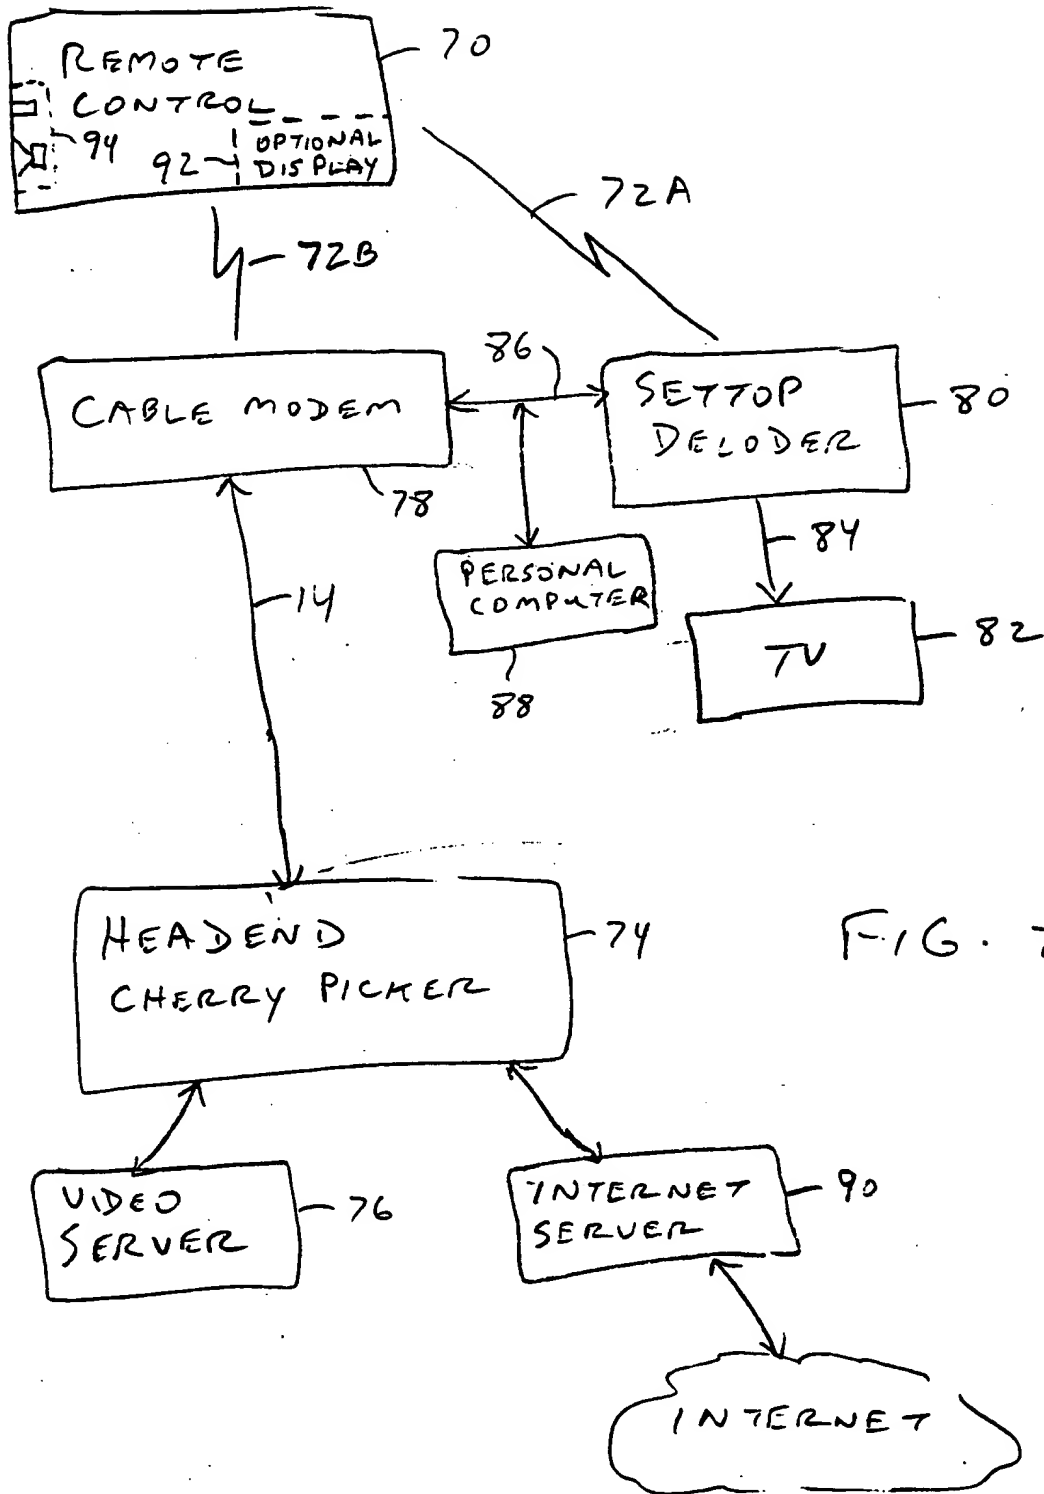 REMOTE
CONTROL
70
94
92
OPTIONAL
DISPLAY
72A
72B
86
CABLE MODEM
78
SETTOP
DELODER
80
84
14
PERSONAL
COMPUTER
88
TV
82
HEADEND
CHERRY PICKER
74
FIG. 7
VIDEO
SERVER
76
INTERNET
SERVER
90
INTERNET